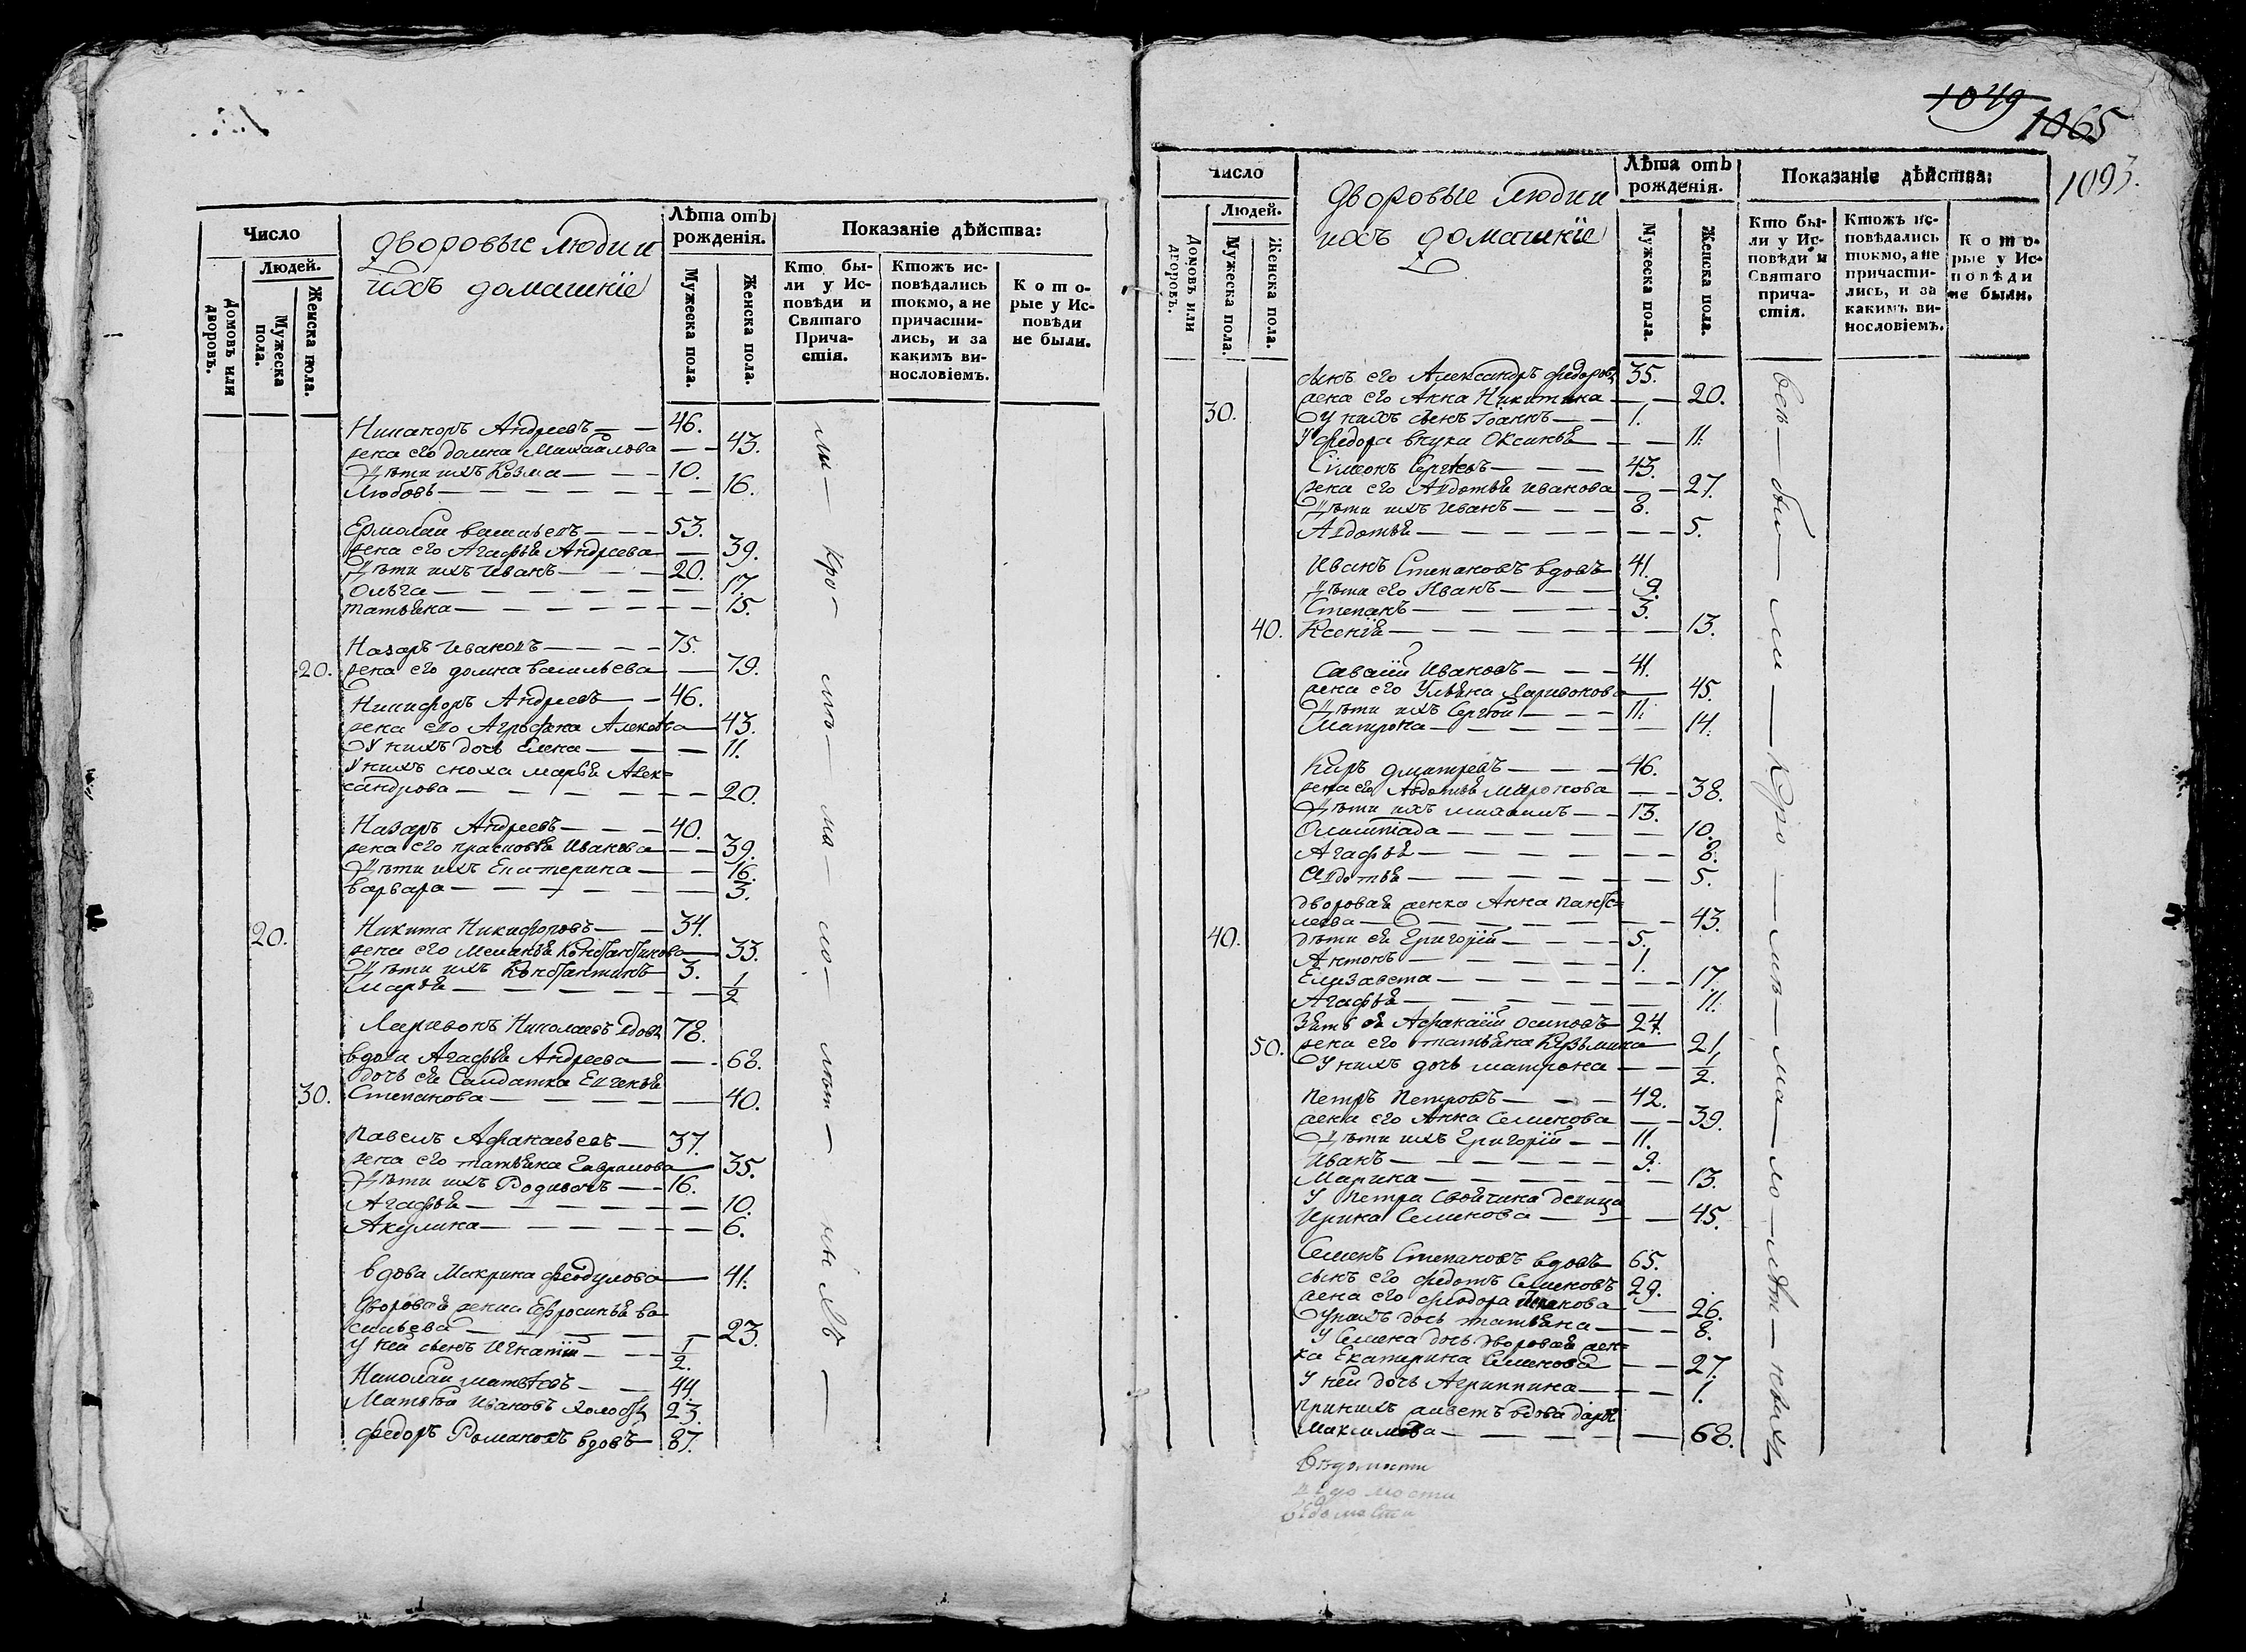 Число
Людей.
Домовъ или дворовъ.
Мужеска пола.
Женска пола.
дворовые люди и
ихъ домашніе
Лѣта отъ рожденія.
Мужеска пола.
Женска пола.
Показаніе дѣйства:
Кто бы-
ли у Ис-
повѣди и
Святаго
Прича-
стія.
Ктожъ ис-
повѣдались
токмо, а не
причасти-
лись, и за
какимъ ви-
нословіемъ.
Кото-
рые у Ис-
повѣди
не были.
Никаноръ Андреевъ — — 46.
жена его домна Михайлова — — 43.
Дѣти ихъ Козма — — — 10.
Любовь — — — — — — 16.
Ермолай васильевъ — — — 53.
жена его Агафья Андреева — — 39.
Дѣти ихъ Иванъ — — — 20.
Ольга — — — — — — 17.
татьяна — — — — — — 15.
Назаръ Ивановъ — — — — 75.
20. жена его домна васильева — — 79.
Никифоръ Андреевъ — — 46.
жена его Аграфена — 43.
У нихъ дочь Елена — — — 11.
У нихъ сноха марья Алек=
сандрова — — — — — — 20.
Назаръ Андреевъ — — — 40.
жена его прасковья Иванова — — 39.
Дѣти ихъ Екатерина — — 16.
варвара — — — — — — 3.
20. Никита Никифоровъ — — 34.
жена его Меланья Константинова — 33.
Дѣти ихъ Константинъ — 3.
марья — — — — — — 1/2
Ларивонъ Николаевъ вдовъ 78.
вдова Агафья Андреева — — 68.
дочь ея Салдатка Евгенья
30. Степанова — — — — — 40.
Павелъ Афанасьевъ — 37.
жена его татьяна Гаврилова — 35.
Дѣти ихъ Родивонъ — — 16.
Агафья — — — — — — 10.
Акулина — — — — — — 6.
вдова Макрина Феодулова — 41.
Дворовая женка Ефросинья ва=
сильева — — — — — — 23.
У ней сынъ Игнатій — — — 1/2.
Николай матвѣевъ — — 44.
Матвѣй Ивановъ холостъ 23.
Федоръ Романовъ вдовъ — 87.
1049
1065
1093.
Число
Людей.
Домовъ или дворовъ.
Мужеска пола.
Женска пола.
дворовые люди и
ихъ домашніе
Лѣта отъ рожденія.
Мужеска пола.
Женска пола.
Показаніе дѣйства:
Кто бы-
ли у Ис-
повѣди и
Святаго
прича-
стія.
Ктожъ ис-
повѣдались
токмо, а не
причасти-
лись, и за
какимъ ви-
нословіемъ.
Кото-
рые у Ис-
повѣди
не были.
сынъ его Александръ Федоровъ 35.
жена его Анна Никитина — — 20.
30. У нихъ сынъ Іоаннъ — — 1.
У Федора внука Оксинья — — — 11.
Симеонъ Сергѣевъ — — — 43.
жена его Авдотья иванова — — 27.
Дѣти ихъ Иванъ — — — 8.
Авдотья — — — — — — — 5.
Иванъ Степановъ вдовъ — 41.
Дѣти его Иванъ — — — 9.
Степанъ — — — — — 3.
40. Ксенія — — — — — — — 13.
Саватій Ивановъ — — — 41.
жена его Ульяна Ларивонова — 45.
Дѣти ихъ Сергѣй — — — 11.
Матрона — — — — — — 14.
Киръ дмитревъ — — — 46.
жена его Авдотья Миронова — — 38.
Дѣти ихъ михаилъ — — 13.
Олимпіада — — — — — 10.
Агафья — — — — — — — 8.
Авдотья — — — — — — — 5.
дворовая женка Анна Пантѣ=
леева — — — — — — — 43.
40. дѣти ея Григорій — — — — 5.
Антонъ — — — — — — 1.
Елизавета — — — — — — 17.
Агафья — — — — — — 11.
Зять ея Афанасій Осиповъ — 24.
50. жена его татьяна Кузьмина — 21.
У нихъ дочь матрона — — 1/2.
Петръ Петровъ — — — 42.
жена его Анна Семенова — — 39.
Дѣти ихъ Григорій — — 11.
Иванъ — — — — — — 9.
Марина — — — — — — — 13.
У Петра Своячина девица
Ирина Семенова — — — 45.
Семенъ Степановъ вдовъ 65.
сынъ его Федотъ Семеновъ 29.
жена его Феодора — 26.
У нихъ дочь татьяна — — — 8.
У Семена дочь дворовая жен=
ка Екатерина Семенова — — 27.
У ней дочь Агрипина — — — 1.
при нихъ живетъ вдова дарья
Максимова — — — — — — 68.
вѣдомости
вѣдомости
вѣдомости